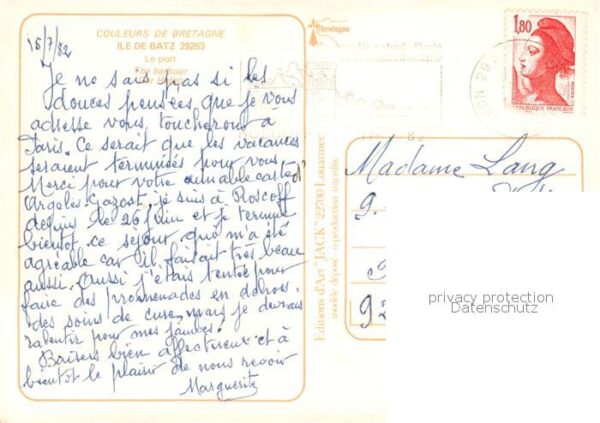 COULEURS DE BRETAGNE
ILE DE BATZ 29253
Le port
The harbour
18/7/82
Je ne sais pas si les
douces pensées, que je vous
adresse vous toucherons a
Paris. Ce serait que les vacances
seraient terminées pour vous.
Merci pour votre aimable carte d'
Argelès Gazost. je suis à Roscoff
depuis le 26 juin et je termine
bientot ce séjour qui m'a été
agréable car il faisait très beau
aussi. Aussi j'étais tentée pour
faire des promenades en dehors
des soins de cure, mais je devrais
ralentir pour mes jambes.
Baisers bien affectueux et à
bientot le plaisir de nous revoir
Marguerite
Editions d'Art "JACK" 22700 Louannec
modèle déposé - reproduction interdite
bretagne
1,80
REPUBLIQUE FRANCAISE
Madame Lang
9.
9
privacy protection
Datenschutz